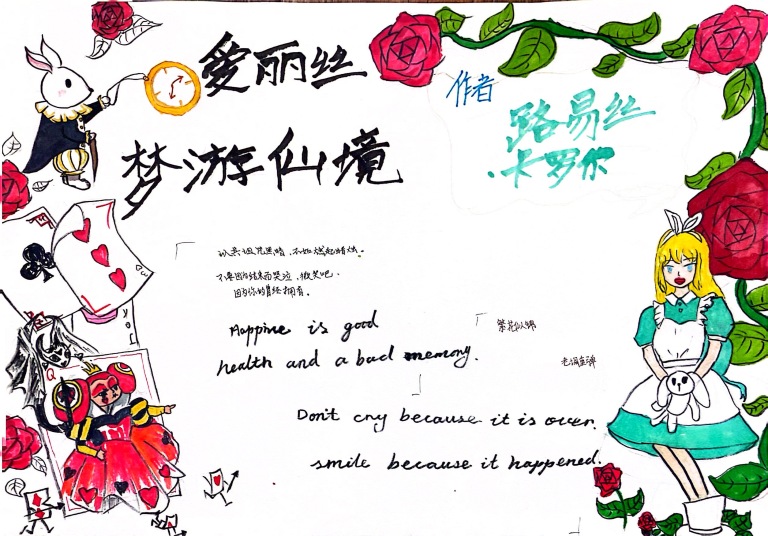 爱丽丝
梦游仙境
作者
路易丝
·卡罗尔
与其诅咒黑暗，不如燃起蜡烛。
不要因为结束而哭泣，微笑吧，
因为你的曾经拥有。
Happine is good
health and a bad memory.
繁花似锦
Don't cry because it is over.
smile because it happened.
Q